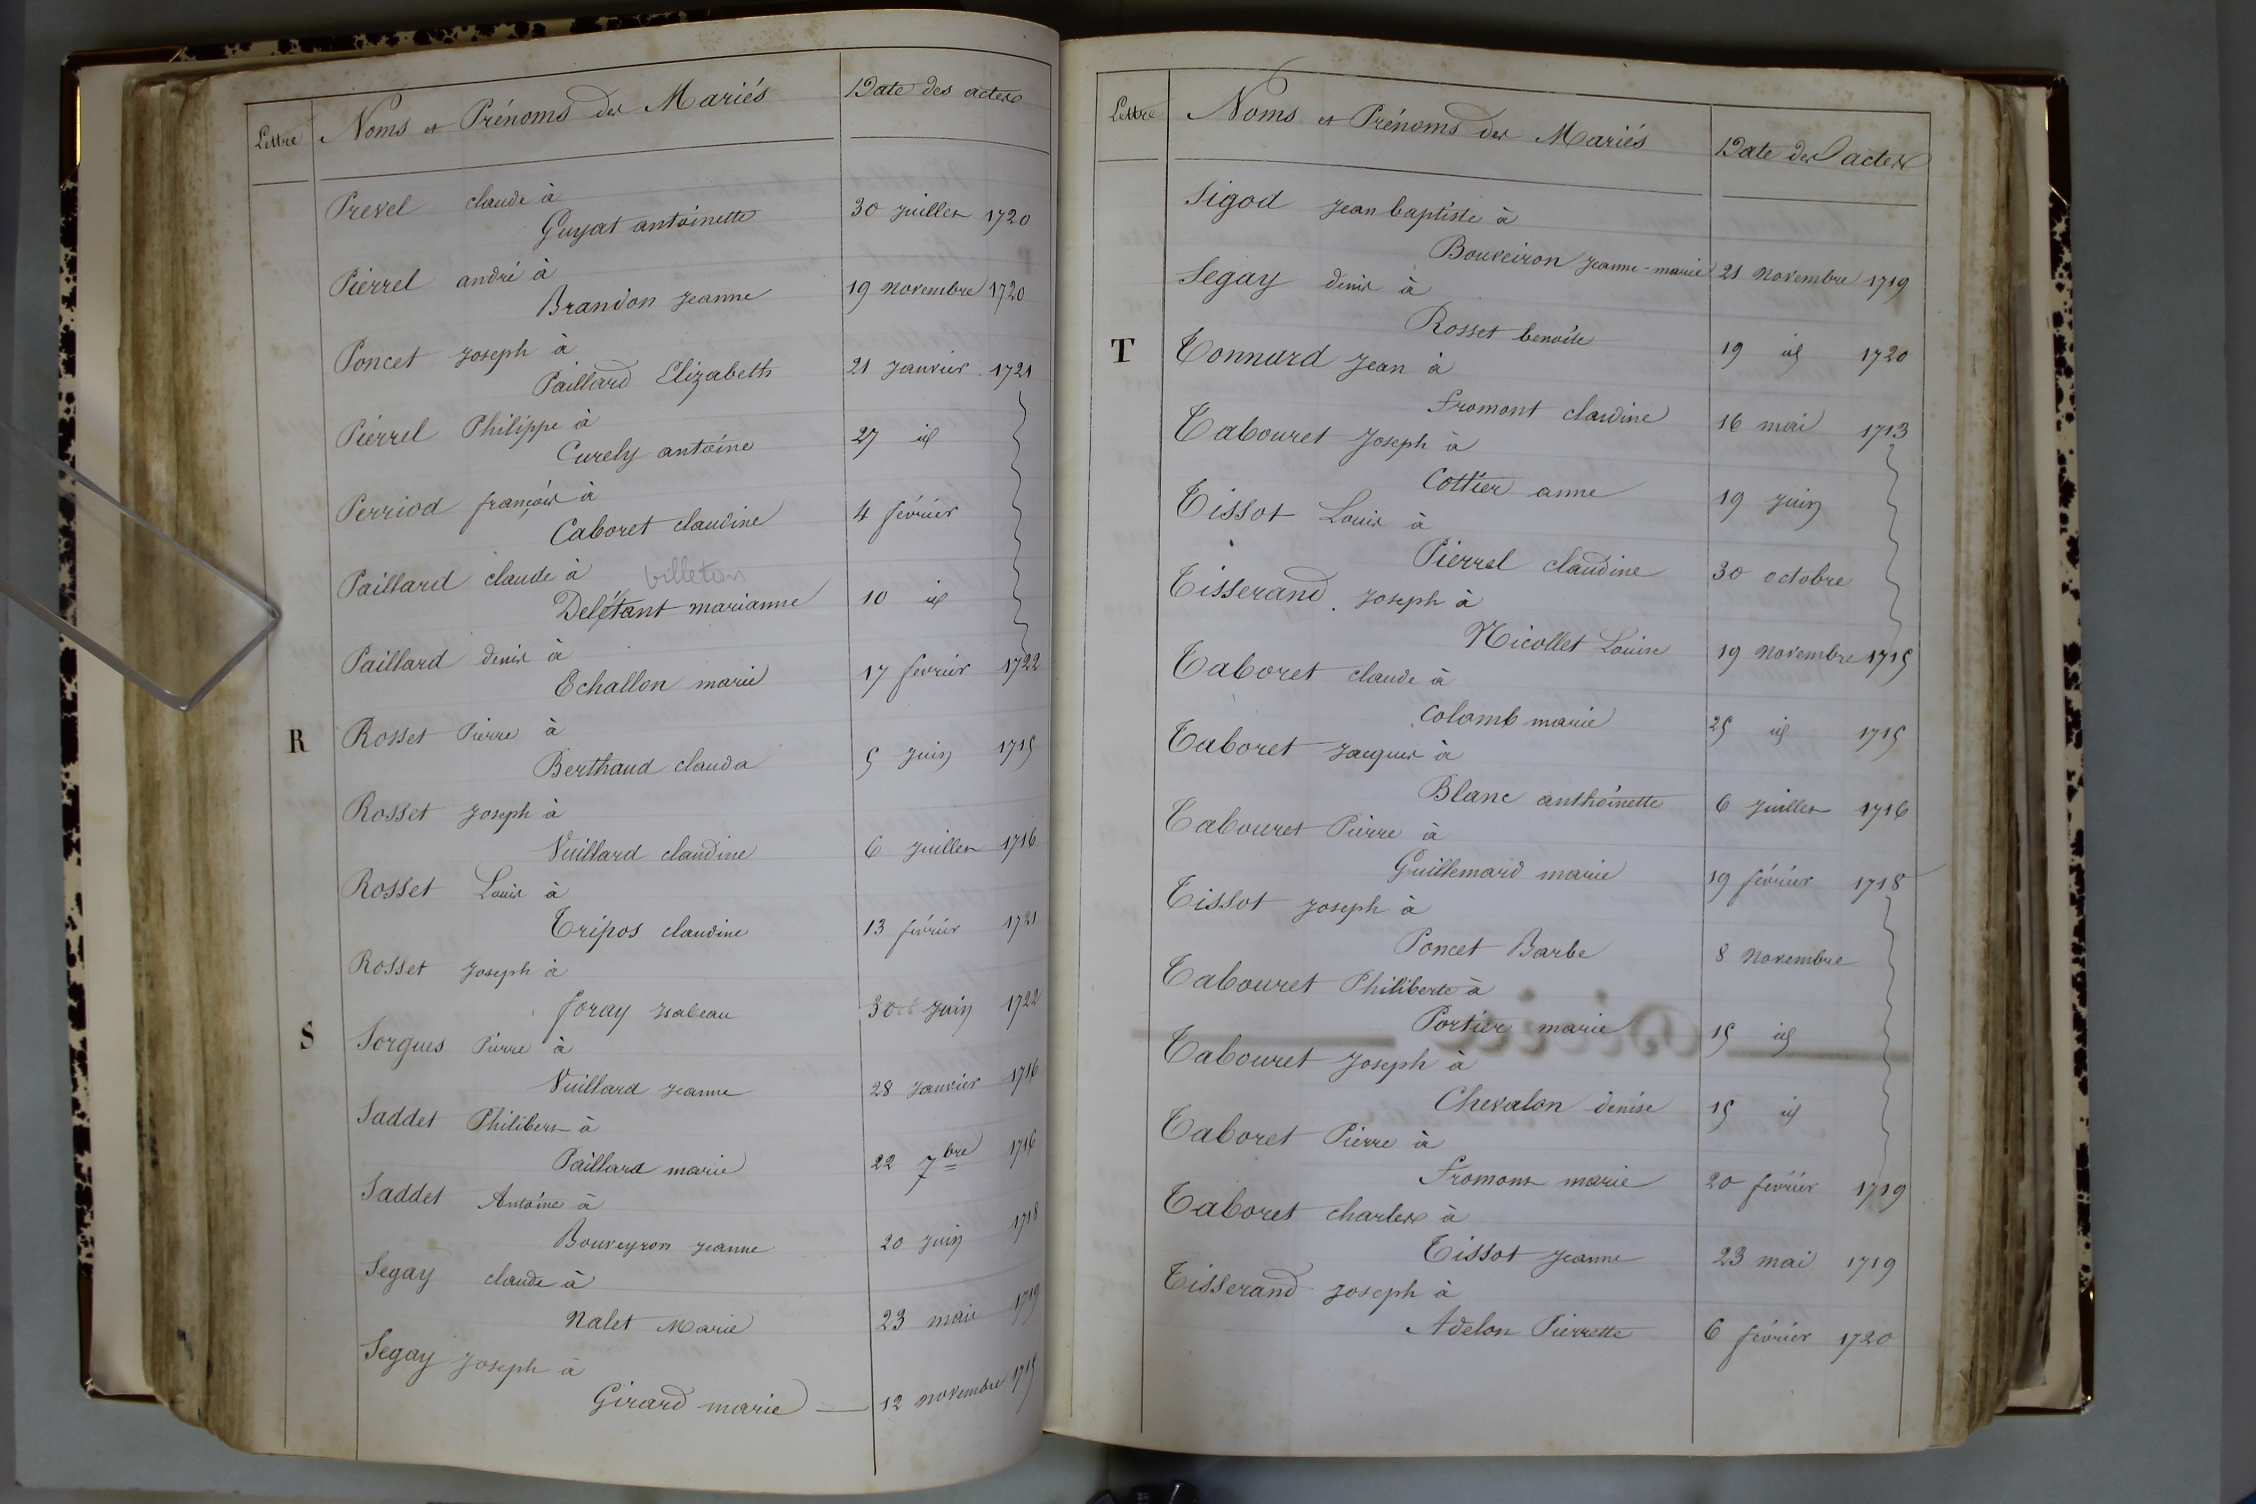 Lettre Noms et Prénoms des Mariés Date des actes
Prevel claude à
Guyat antoinette 30 juillet 1720
Pierrel andré à
Brandon jeanne 19 novembre 1720
Poncet joseph à
Paillard Elizabeth 21 janvier 1721
Pierrel Philippe à
Curely antoine 27 id
Perriod françois à
Caboret claudine 4 février
Paillard claude à billeton
Delétant marianne 10 id
Paillard denis à
Echallon marie 17 février 1722
R Rosset Pierre à
Berthaud clauda 5 juin 1715
Rosset joseph à
Vuillard claudine 6 juillet 1716
Rosset Louis à
Tripos claudine 13 février 1721
Rosset joseph à
foray isabeau 30 juin 1722
S Sorgues Pierre à
Vuillard jeanne 28 janvier 1716
Saddet Philibert à
Paillard marie 22 7bre 1716
Saddet Antoine à
Bouveyron jeanne 20 juin 1718
Segay claude à
Nalet Marie 23 mai 1719
Segay joseph à
Girard marie 12 novembre 1715
Lettre Noms et Prénoms des Mariés Date des actes
Sigod jean baptiste à
Bouveiron jeanne-marie 21 novembre 1719
Segay denis à
Rosset benoite 19 id 1720
T Tonnard jean à
fromont claudine 16 mai 1713
Tabouret joseph à
Cottier anne 19 juin
Tissot Louis à
Pierrel claudine 30 octobre
Tisserand joseph à
Nicollet Louise 19 novembre 1715
Taboret claude à
Colomb marie 25 id 1715
Taboret jacques à
Blanc anthoinette 6 juillet 1716
Tabouret Pierre à
Guillemard marie 19 février 1718
Tissot joseph à
Poncet Barbe 8 novembre
Tabouret Philiberte à
Portier marie 15 id
Tabouret joseph à
Chevalon denise 15 id
Taboret Pierre à
fromont marie 20 février 1719
Taboret charles à
Tissot jeanne 23 mai 1719
Tisserand joseph à
Adelon Pierrette 6 février 1720